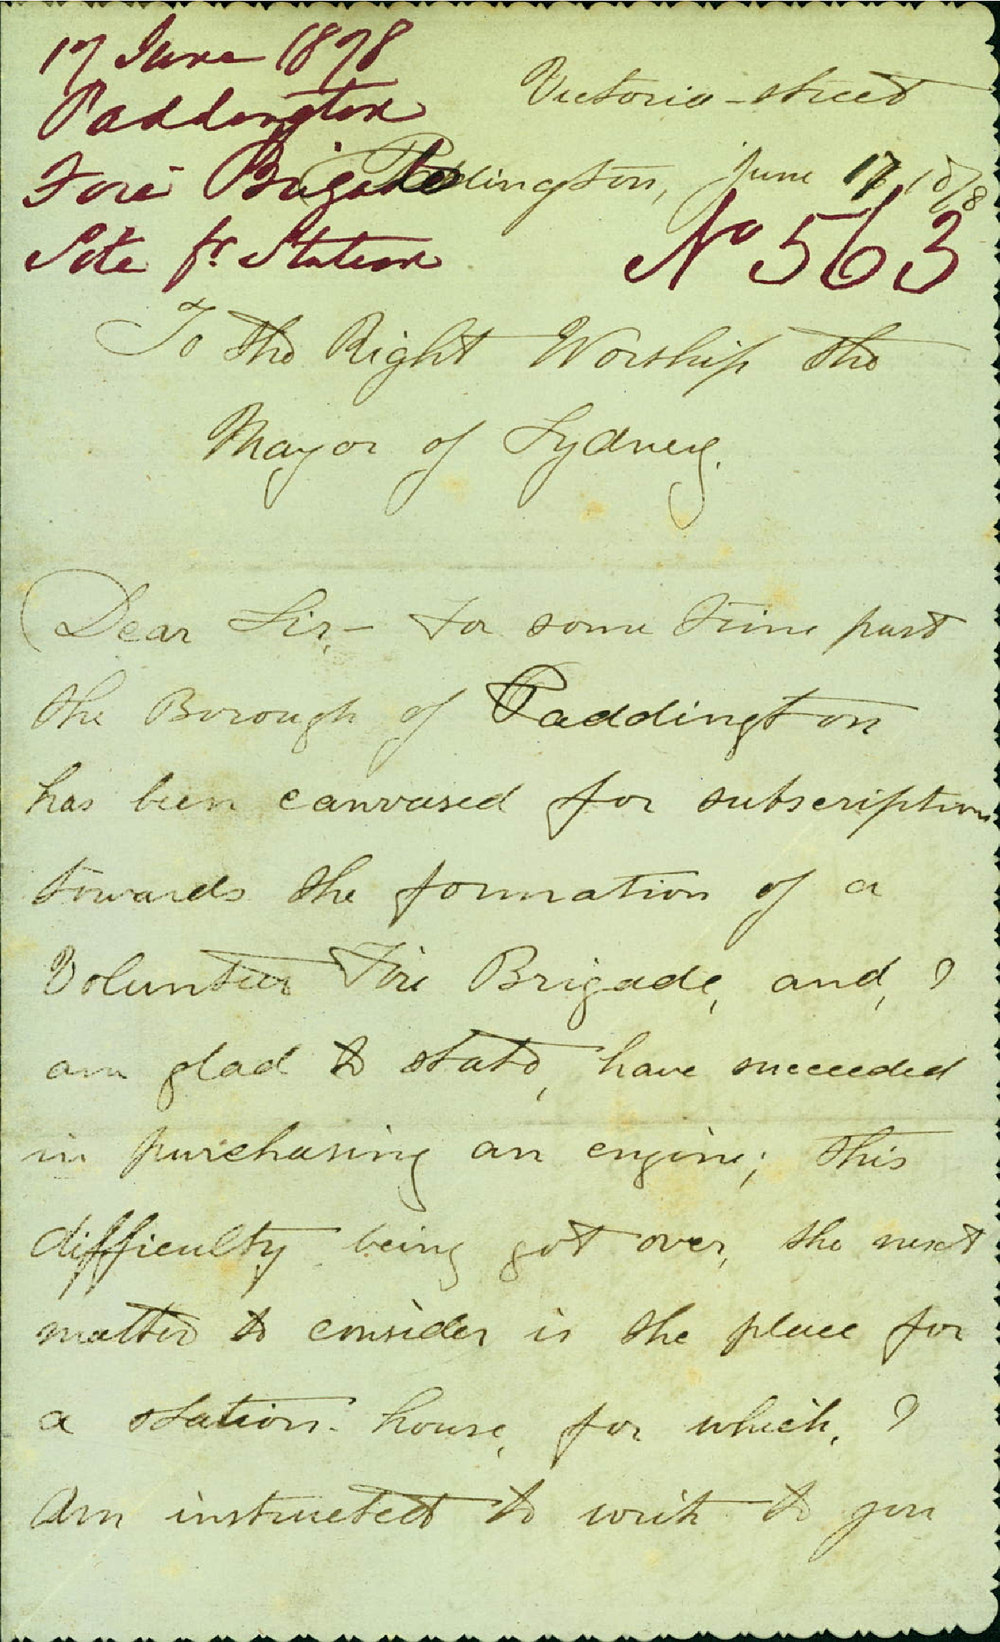 17 June 1878
Paddington
Fire Brigade
Site fr. Station
Victoria-street
Paddington, June 17, 1878
No 563
To the Right Worship the
Mayor of Sydney.
Dear Sir,- For some time past
the Borough of Paddington
has been canvased for subscriptions
towards the formation of a
Volunteer Fire Brigade, and, I
am glad to state, have succeeded
in purchasing an engine; this
difficulty being got over, the next
matter to consider is the place for
a station-house, for which, I
am instructed to write to you